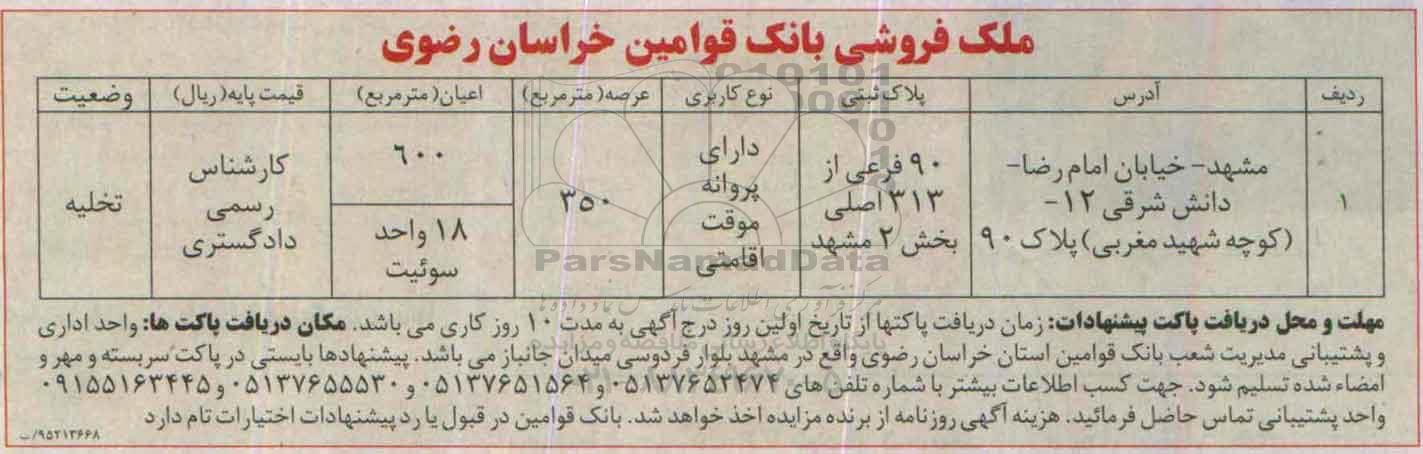 ملک فروشی بانک قوامین خراسان رضوی
ردیف آدرس پلاک ثبتی نوع کاربری عرصه(مترمربع) اعیان(مترمربع) قیمت پایه(ریال) وضعیت
۱
مشهد- خیابان امام رضا-
دانش شرقی ۱۲-
(کوچه شهید مغربی) پلاک ۹۰
۹۰ فرعی از
۳۱۳ اصلی
بخش ۲ مشهد
دارای
پروانه
موقت
اقامتی
۳۵۰
۶۰۰
۱۸ واحد
سوئیت
کارشناس
رسمی
دادگستری
تخلیه
ParsNamadData
مهلت و محل دریافت پاکت پیشنهادات: زمان دریافت پاکتها از تاریخ اولین روز درج آگهی به مدت ۱۰ روز کاری می باشد. مکان دریافت پاکت ها: واحد اداری
و پشتیبانی مدیریت شعب بانک قوامین استان خراسان رضوی واقع در مشهد بلوار فردوسی میدان جانباز می باشد. پیشنهادها بایستی در پاکت سربسته و مهر و
امضاء شده تسلیم شود. جهت کسب اطلاعات بیشتر با شماره تلفن های ۰۵۱۳۷۶۵۲۴۷۴ و ۰۵۱۳۷۶۵۱۵۶۴ و ۰۵۱۳۷۶۵۵۵۳۰ و ۰۹۱۵۵۱۶۳۴۴۵
واحد پشتیبانی تماس حاصل فرمائید. هزینه آگهی روزنامه از برنده مزایده اخذ خواهد شد. بانک قوامین در قبول یا رد پیشنهادات اختیارات تام دارد
۹۵۲۱۳۶۶۸/ب